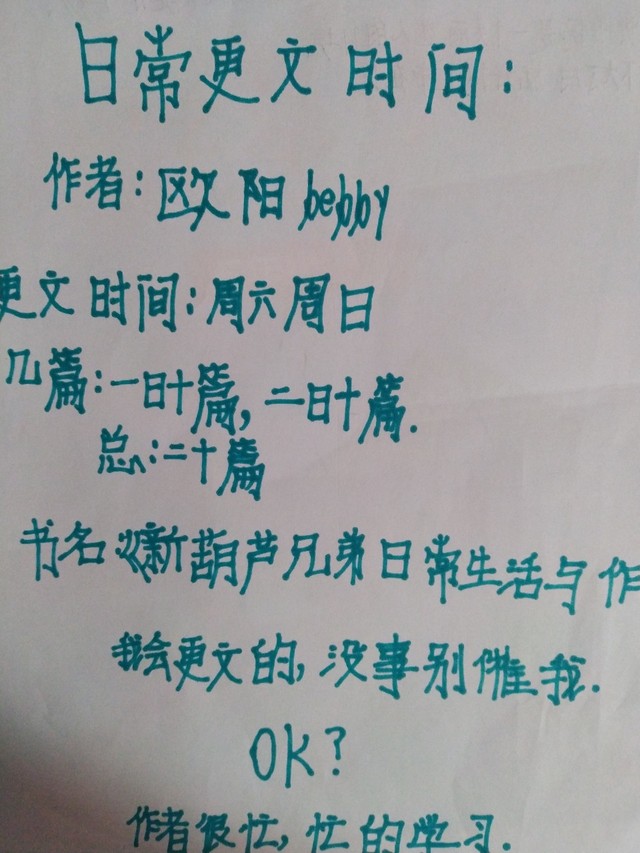 日常更文时间:
作者:欧阳bebby
更文时间:周六周日
几篇:一日十篇,二日十篇.
总:二十篇
书名《新葫芦兄弟日常生活与作
我会更文的,没事别催我.
OK?
作者很忙,忙的学习.